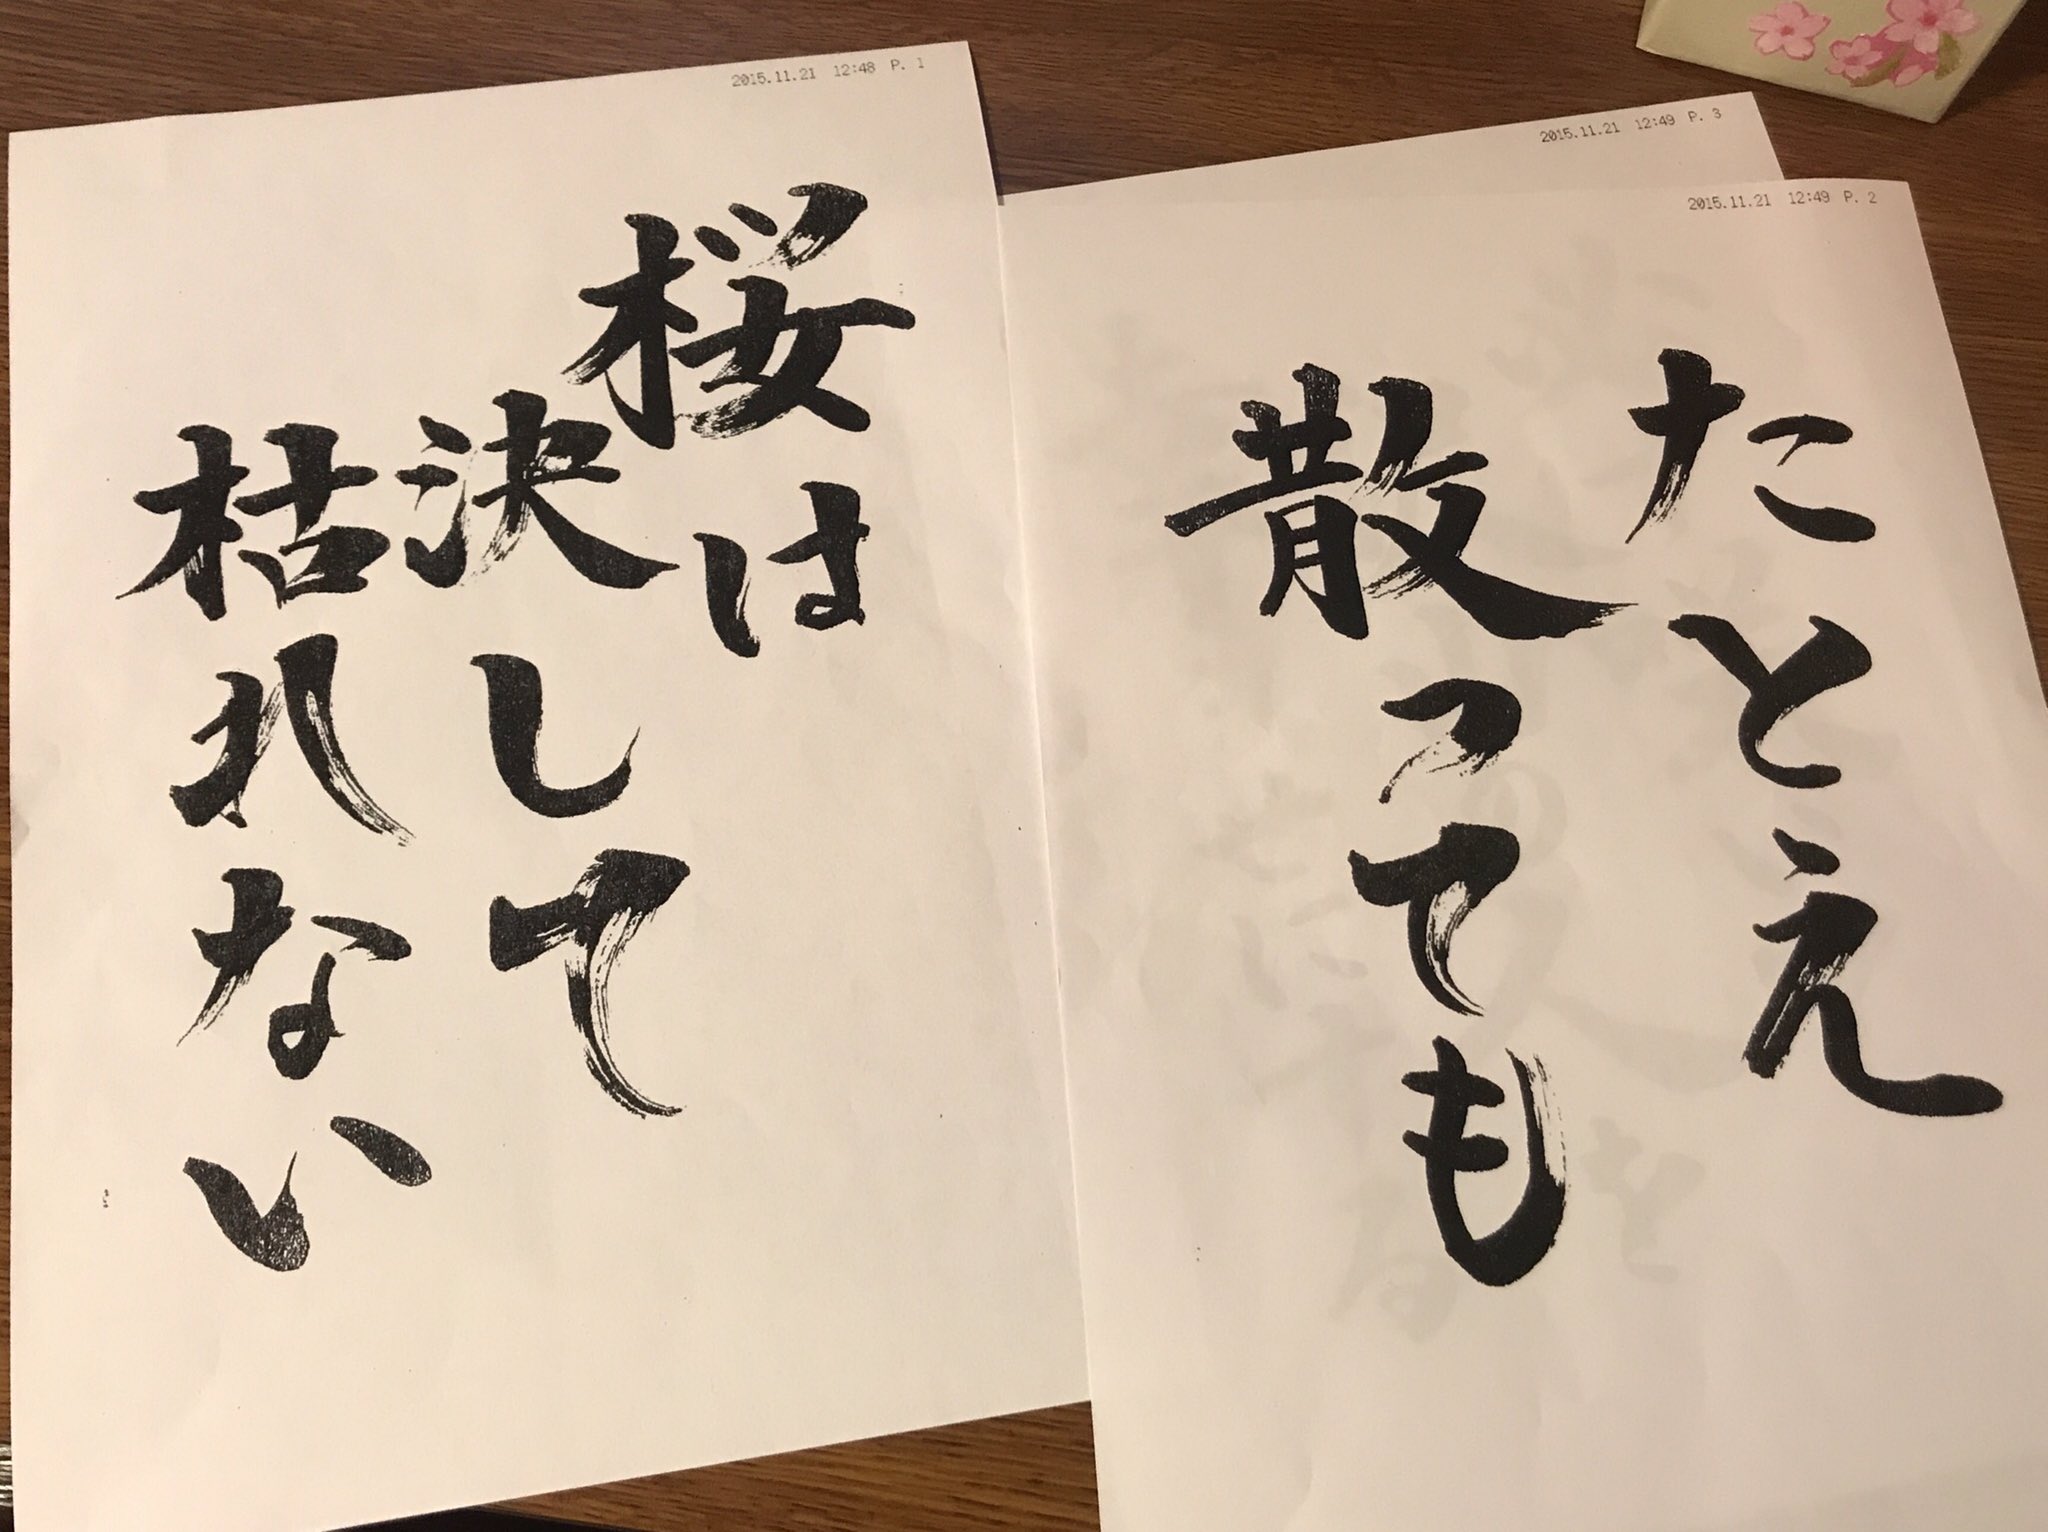 2015.11.21 12:48 P. 1
桜は
決して
枯れない
2015.11.21 12:49 P. 3
2015.11.21 12:49 P. 2
たとえ
散っても